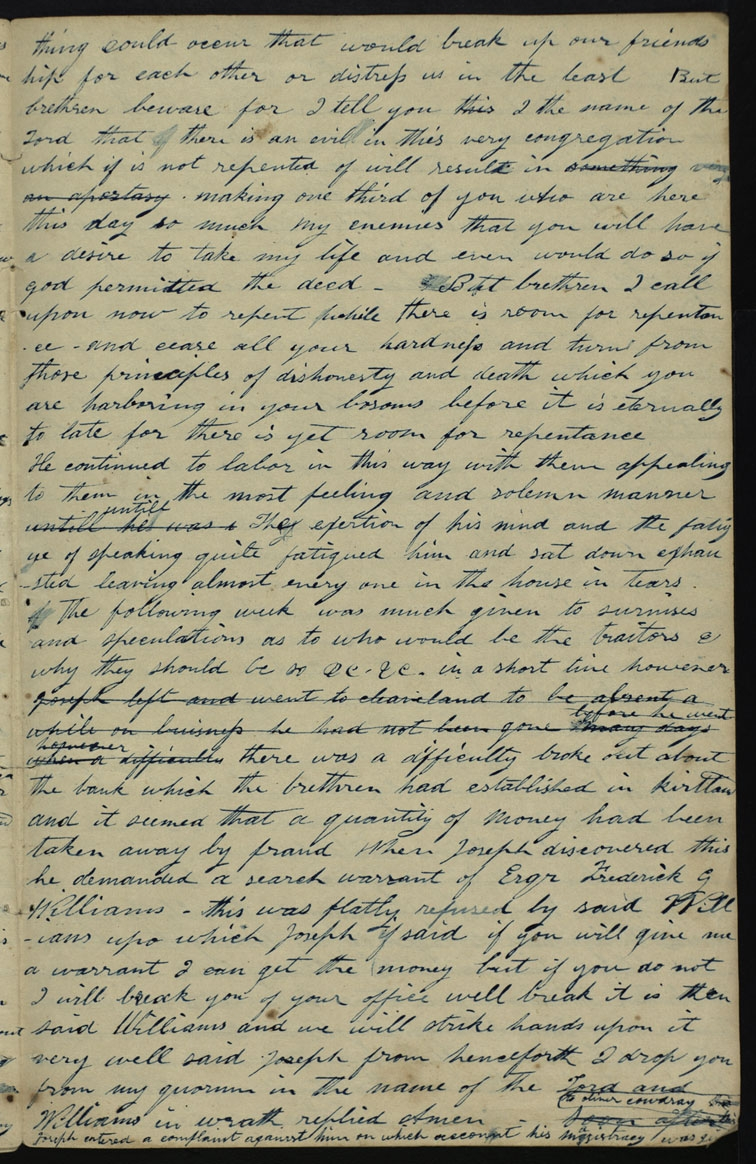 thing could occur that would break up our friends
hip for each other or distress us in the least But
brethren beware for I tell you this I the name of the
Lord that there is an evil in this very congregation
which if is not repented of will result in something
an apostasy. making one third of you who are here
this day so much my enemies that you will have
a desire to take my life and even would do so if
god permitted the deed - But brethren I call
upon now to repent while there is room for repentan
-ce - and cease all your hardness and turn from
those principles of dishonesty and death which you
are harboring in your bosoms before it is eternally
to late for there is yet room for repentance
He continued to labor in this way with them appealing
to them in the most feeling and solemn manner
untill
untill he was The exertion of his mind and the fatig
ue of speaking quite fatigued him and sat down exhau
-sted leaving almost every one in the house in tears.
The following week was much given to surmises
and speculations as to who would be the traitors &
why they should be so &c - &c. in a short time however
Joseph left and went to cleaveland to be absent a
before he went
while on buisness he had not been gone many days
however
when a difficulty there was a difficulty broke out about
the bank which the brethren had established in kirtlan
and it seemed that a quantity of money had been
taken away by fraud When Joseph discovered this
he demanded a search warrant of Esqr Frederick G
Williams - this was flatly refused by said Will
-iams upo which Joseph said if you will give me
a warrant I can get the money but if you do not
I will break you of your office well break it is then
said Williams and we will strike hands upon it
very well said Joseph from henceforth I drop you
from my quorum in the name of the Lord and
to oliver cowdray
Williams in wrath replied Amen - Soon after
Joseph entered a complaint against him on which account his magistracy was